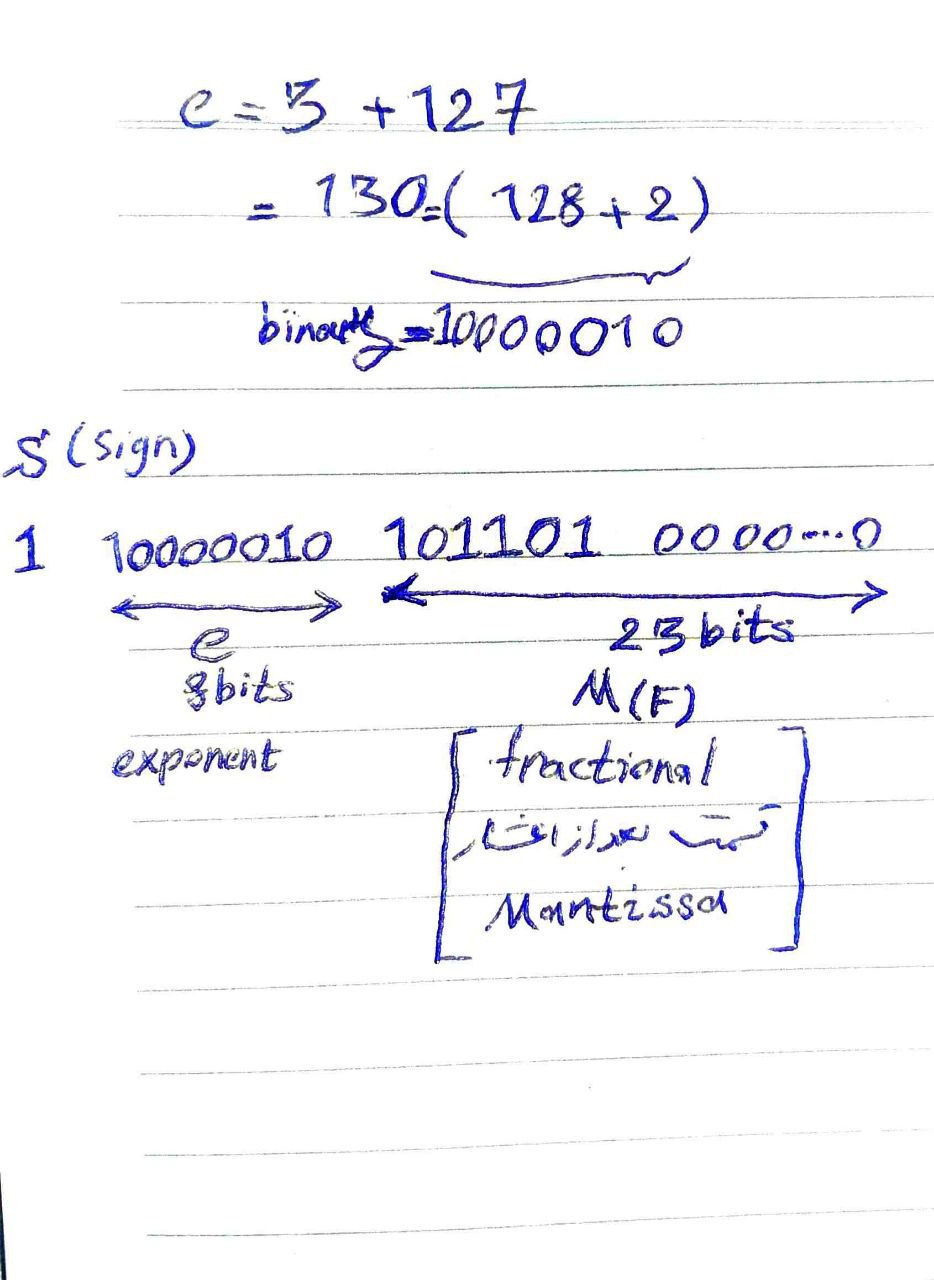 e = 3 + 127
= 130 = ( 128 + 2 )
binary = 10000010
S (sign)
1 10000010 101101 0000...0
e 23 bits
8 bits M (F)
exponent fractional
قسمت بعد از اعشار
Mantissa